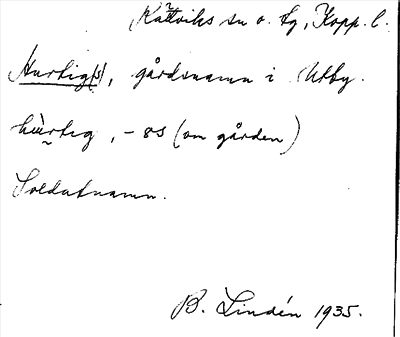 Rättviks sn o. tg, Kopp. l.
Hurtig(s), gårdsnamn i Utby.
hùrteg, -as (om gården)
Soldatnamn.
B. Lindén 1935.